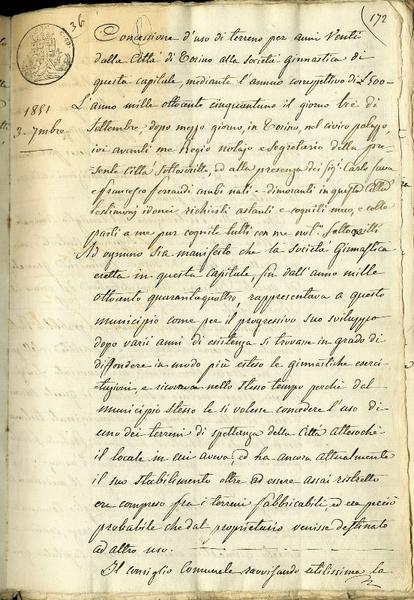 36
172
Concessione d'uso di terreno per anni Venti
dalla Città di Torino alla Società Ginnastica di
questa capitale, mediante l'annuo corrispettivo di £ 500 -
1851
3. 7mbre
L'anno mille ottocento cinquantuno il giorno tre di
Settembre dopo mezzo giorno in Torino, nel civico palazzo,
ivi avanti me Regio notajo e Segretario della pre
sente Città sottoscritto, ed alla presenza dei sigi. Carlo
e francesco ferrandi ambi nati e dimoranti in questa Città
testimonj idonei richiesti astanti e cogniti meco, e colle
parti a me pur cognite tutti con me not.o sottoscritti
Ad ognuno sia manifesto che la Società Ginnastica
eretta in questa capitale, fin dall'anno mille
ottocento quarantaquattro, rappresentava a questo
municipio come per il progressivo suo sviluppo
dopo varii anni di esistenza si trovasse in grado di
diffondere in modo più esteso le ginnastiche eserci
tazioni e ricorreva nello stesso tempo perché dal
municipio stesso le si volesse concedere l'uso di
uno dei terreni di spettanza della Città attesochè
il locale in cui aveva, ed ha ancora attualmente
il suo stabilimento oltre ad essere assai ristretto
era compreso fra i terreni fabbricabili ed era perciò
probabile che dal proprietario venisse destinato
ad altro uso.
Il consiglio Comunale ravvisando utilissima la